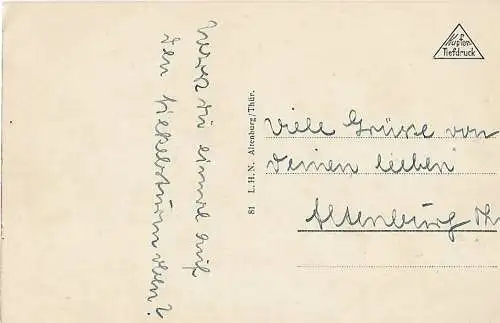 Kupfer-
Tiefdruck
Viele Grüße von
Deinen lieben
Altenburg Th
81 L. H. N. Altenburg/Thür.
Warst du einmal auf
den
oben?